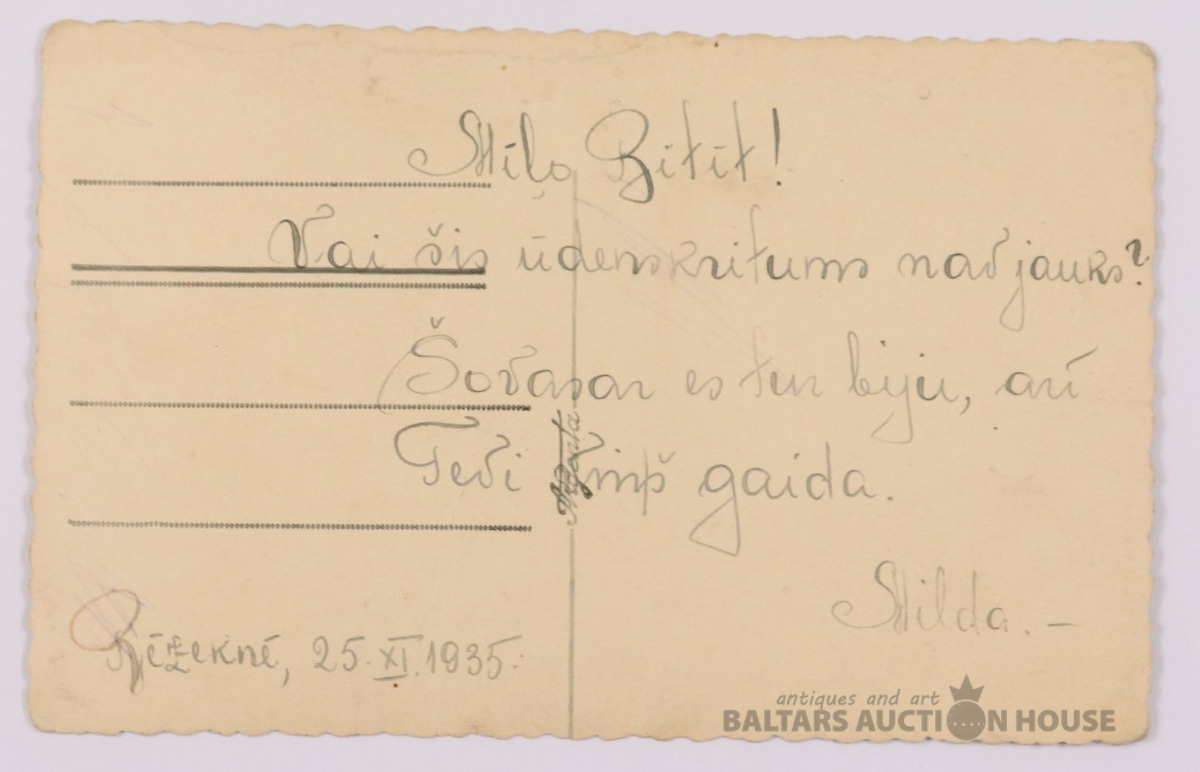 Mīļo Ritīt!
Vai šis ūdenskritums nav jauks?
Šovasar es tur biju, arī
Tevi viņš gaida.
Milda. —
Rēzeknē, 25. XI. 1935.
antiques and art
BALTARS AUCTION HOUSE